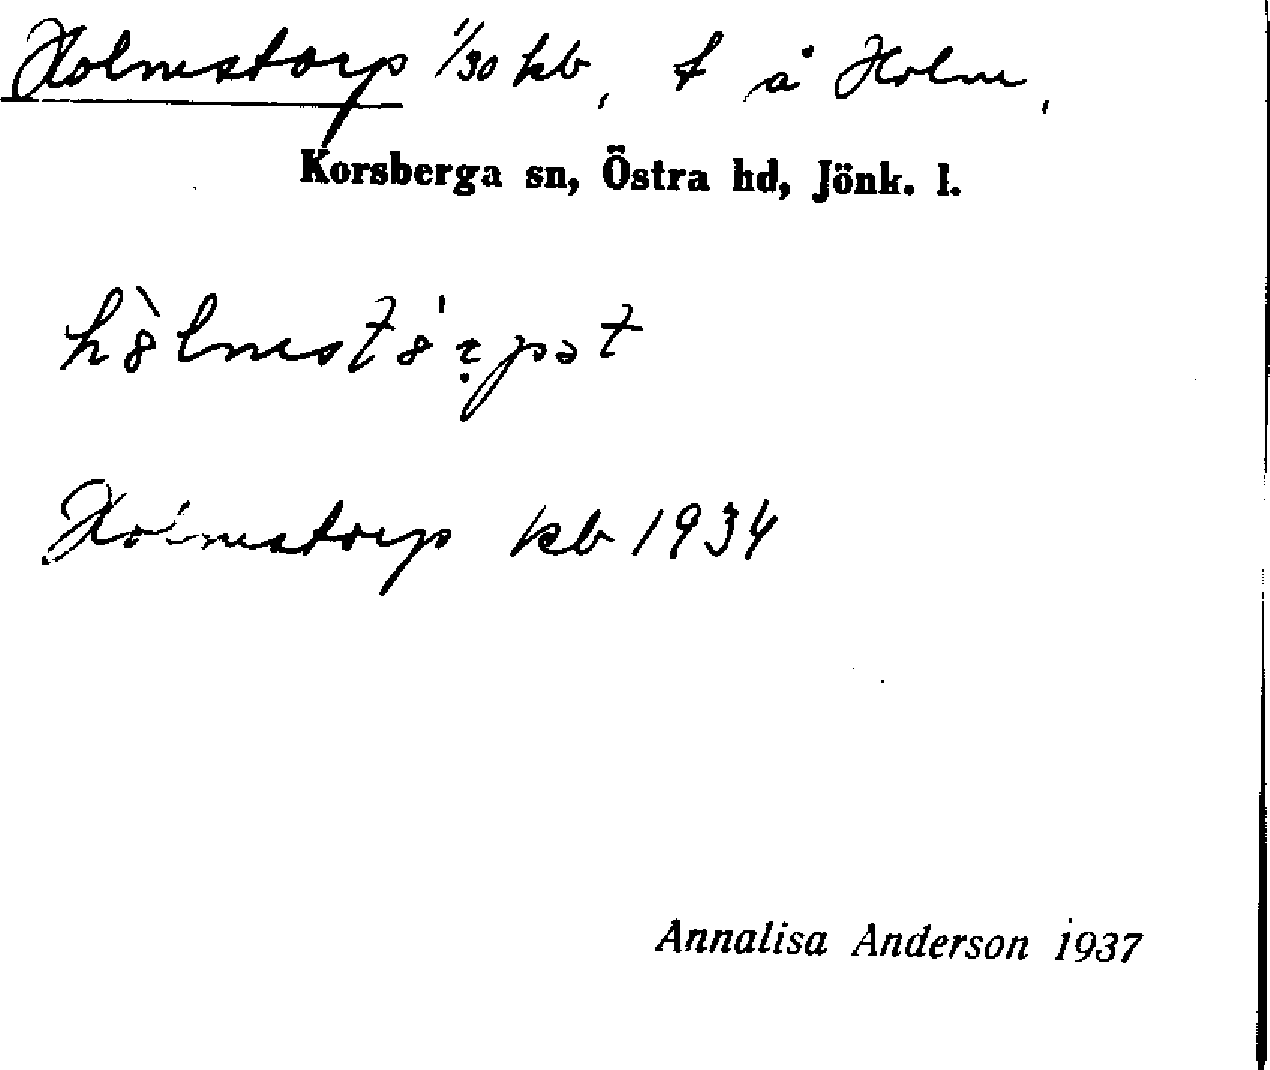 Holmstorp 1/30 kb, t å Holm,
Korsberga sn, Östra hd, Jönk. l.
Holmstorp kb 1934
Annalisa Anderson 1937